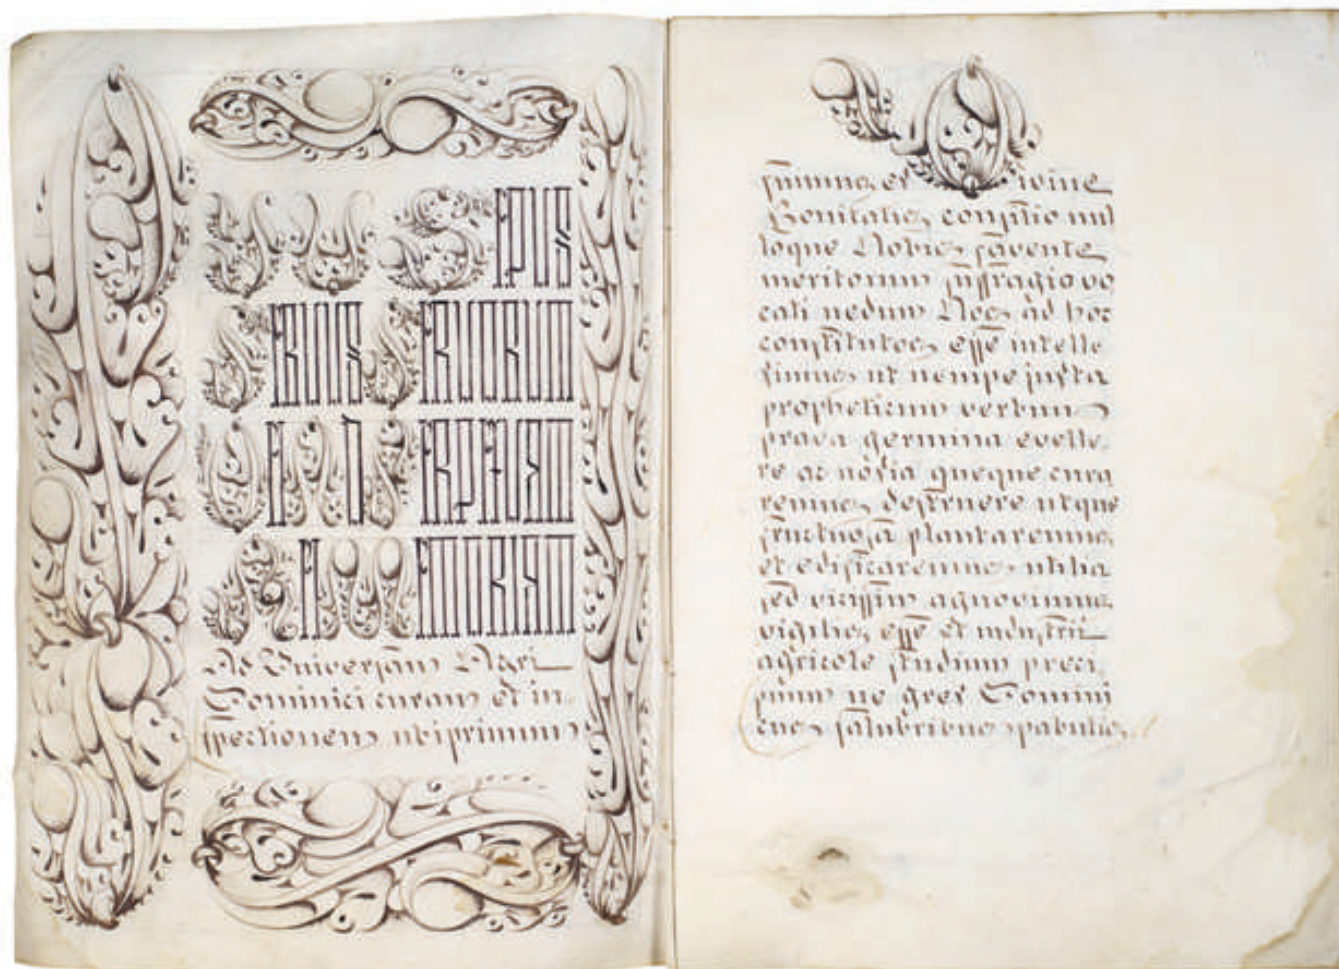 EPUS
SERUUS SERUORUM
DEI AD PERPETUAM
REI MEMORIAM
Ad Universam Agri
Dominici curam et in
spectionem ubi primum
sumus et Divine
Bonitatis consilio nul
loque Nobis favente
meritorum suffragio vo
cati nedum Nos ad hoc
constitutos esse intelle
ximus ut nempe juxta
propheticum verbum
prava germina evelle
re ac noxia queque cura
remus destruere utque
fructuosa plantaremus
et edificaremus utilia
sed vicissim agnovimus
vigilis esse et industrii
agricole studium preci
puum ne grex Domini
cus salubribus pabulis